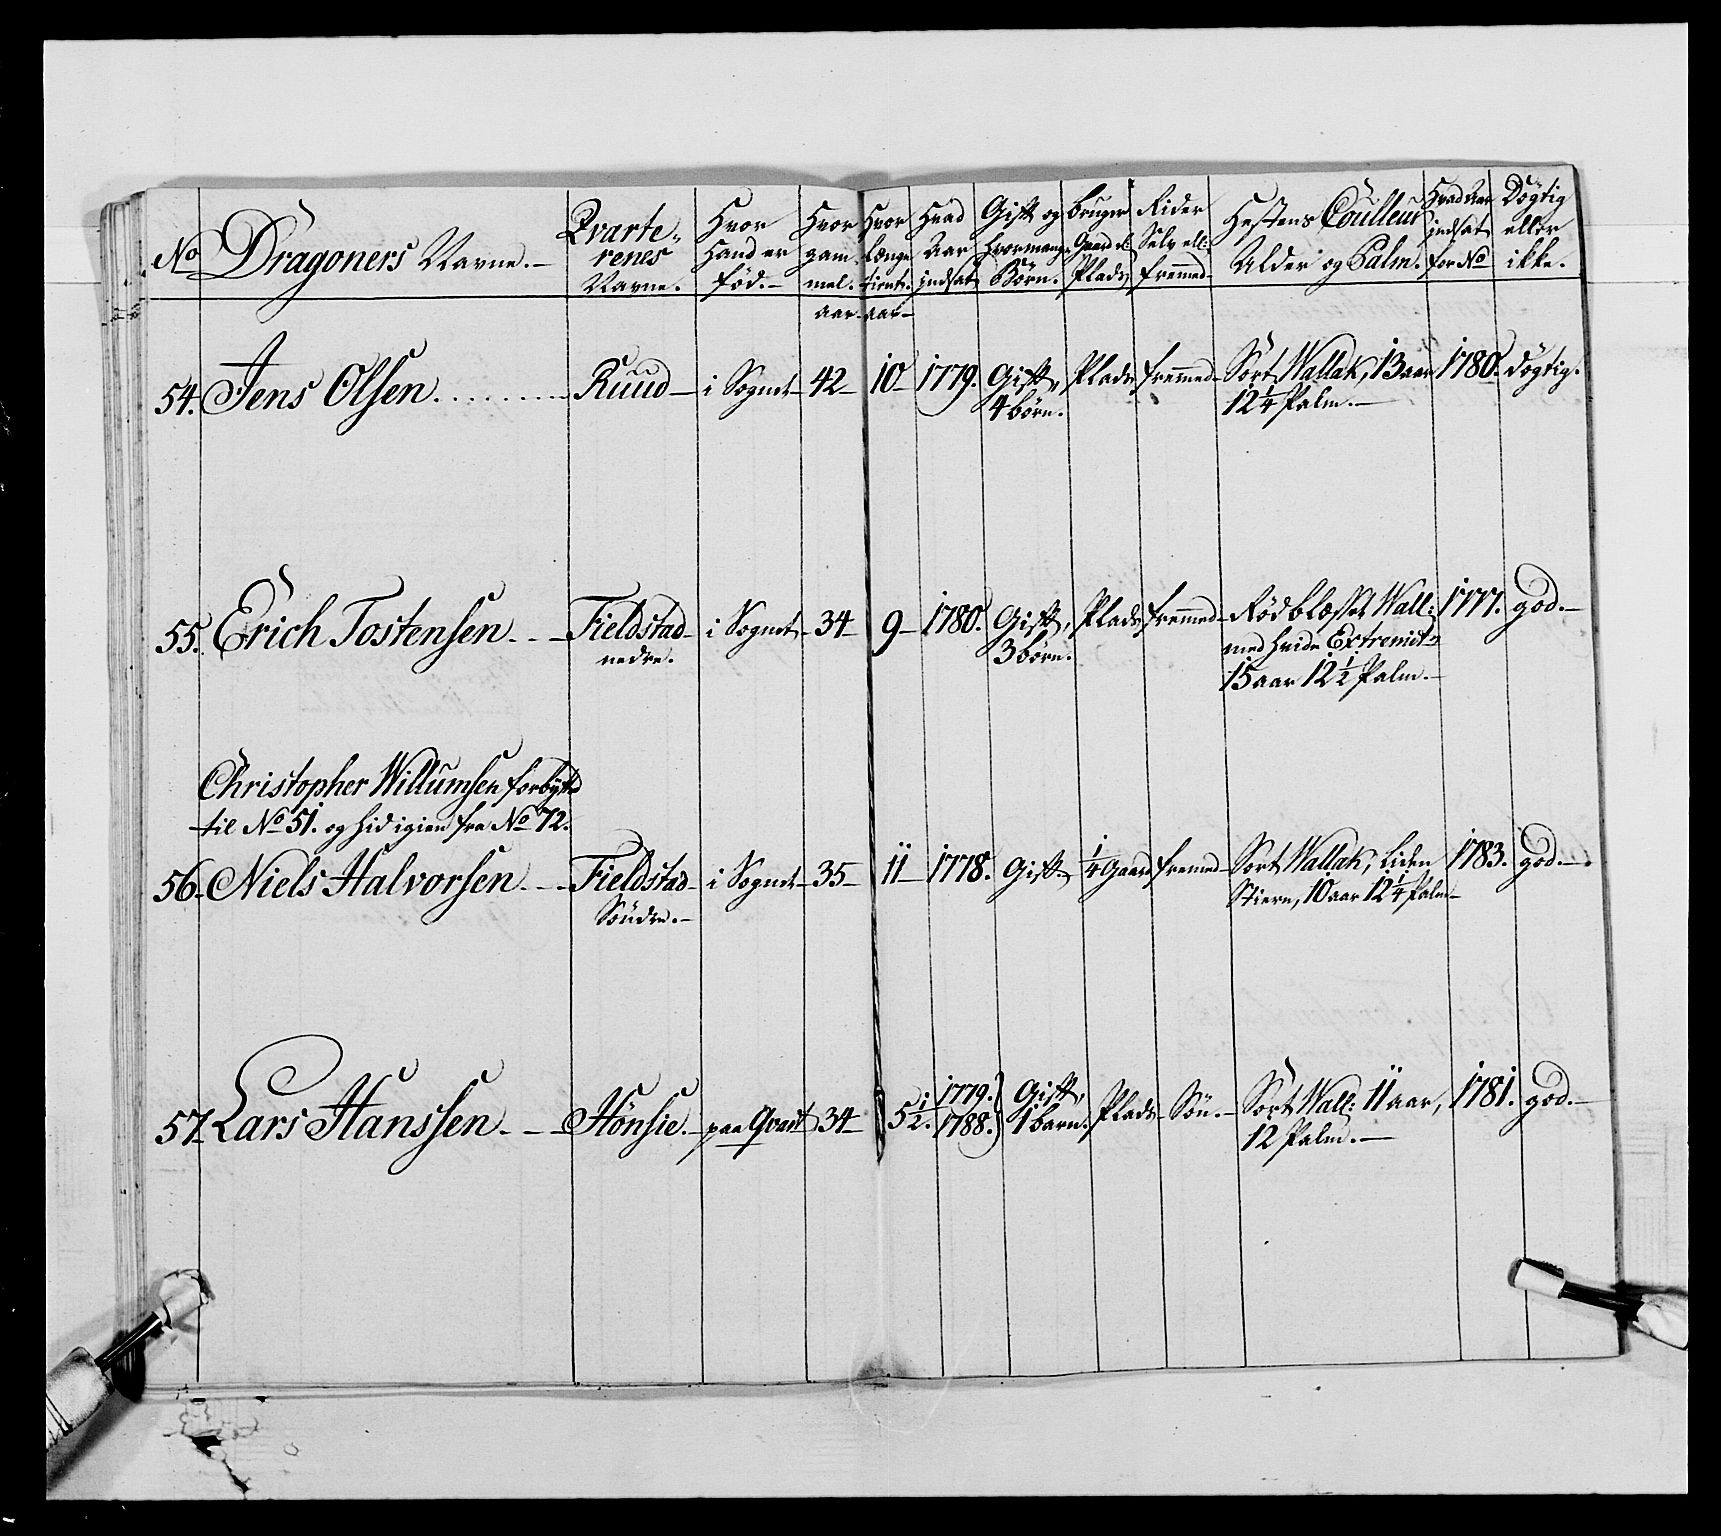 No Dragoners Navne. Qvarte- renes Navne. Hvor Hand er född. Hvor gam- mel. Hvor længe tient. Hvad Aar indsat Gift og hvormange Börn. bruger Gaard el: Plads Rider Selv ell: fremmed Hestens Coulleur Alder og Palm. Hvad Aar indsat for No Dögtig eller ikke.
aar aar
54. Jens Olsen Ruud i Sognet 42 10 1779. Gift, Plads fremmed Sort Wallak, 13 aar 1780. dögtig.
4 börn. 12¼ Palm.
55. Erich Tostensen Fieldstad i Sognet 34 9 1780. Gift, Plads fremmed Rödblesset Wall: 1777. god.
nedre. 3 börn. med hvide Extremit:
15 aar 12½ Palm.
Christopher Willumsen forbytted
til No 51. og hid igien fra No 72.
56. Niels Halvorsen Fieldstad i Sognet 35 11 1778. Gift ¼ Gaard fremed Sort Wallak, liden 1783. god.
Söndre. Stiern, 10 aar 12¼ Palm
57. Lars Hanssen Hönsie. paa Qvart 34 5½. 1779. 1788. Gift, 1 barn. Plads Sön. Sort Wall: 11 aar, 1781. god.
12 Palm.